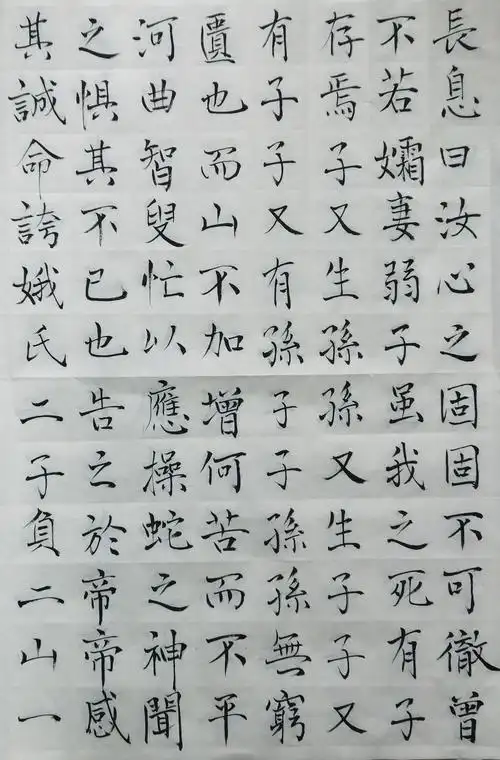 長息曰汝心之固固不可徹曾
不若孀妻弱子虽我之死有子
存焉子又生孫孫又生子子又
有子子又有孫子子孫孫無窮
匱也而山不加增何苦而不平
河曲智叟忙以應操蛇之神聞
之惧其不已也告之於帝帝感
其誠命誇娥氏二子負二山一